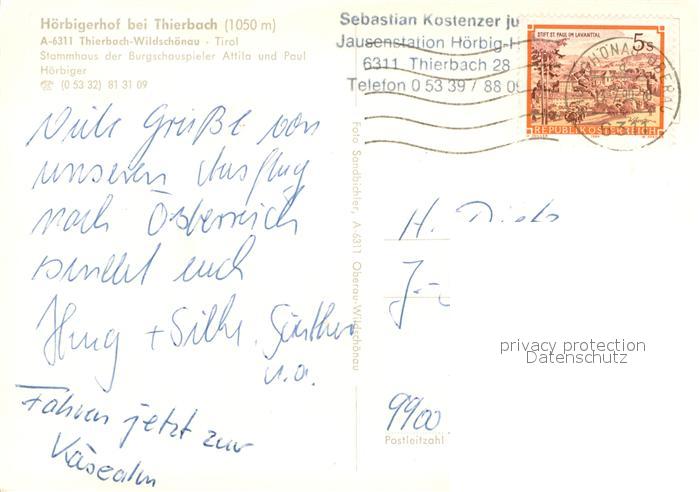 Hörbigerhof bei Thierbach (1050 m)
A-6311 Thierbach-Wildschönau · Tirol
Stammhaus der Burgschauspieler Attila und Paul
Hörbiger
☎ (0 53 32) 81 31 09
Sebastian Kostenzer ju
Jausenstation Hörbig-H
6311 Thierbach 28
Telefon 0 53 39 / 88 09
STIFT ST. PAUL IM LAVANTTAL
5 S
REPUBLIK ÖSTERREICH
Viele Grüße von
unserem Ausflug
nach Österreich
sendet euch
+ Silke, Günther
u.a.
Fahren jetzt zur
Käsealm
Foto Sandbichler, A-6311 Oberau-Wildschönau
H.
9900
Postleitzahl
privacy protection
Datenschutz